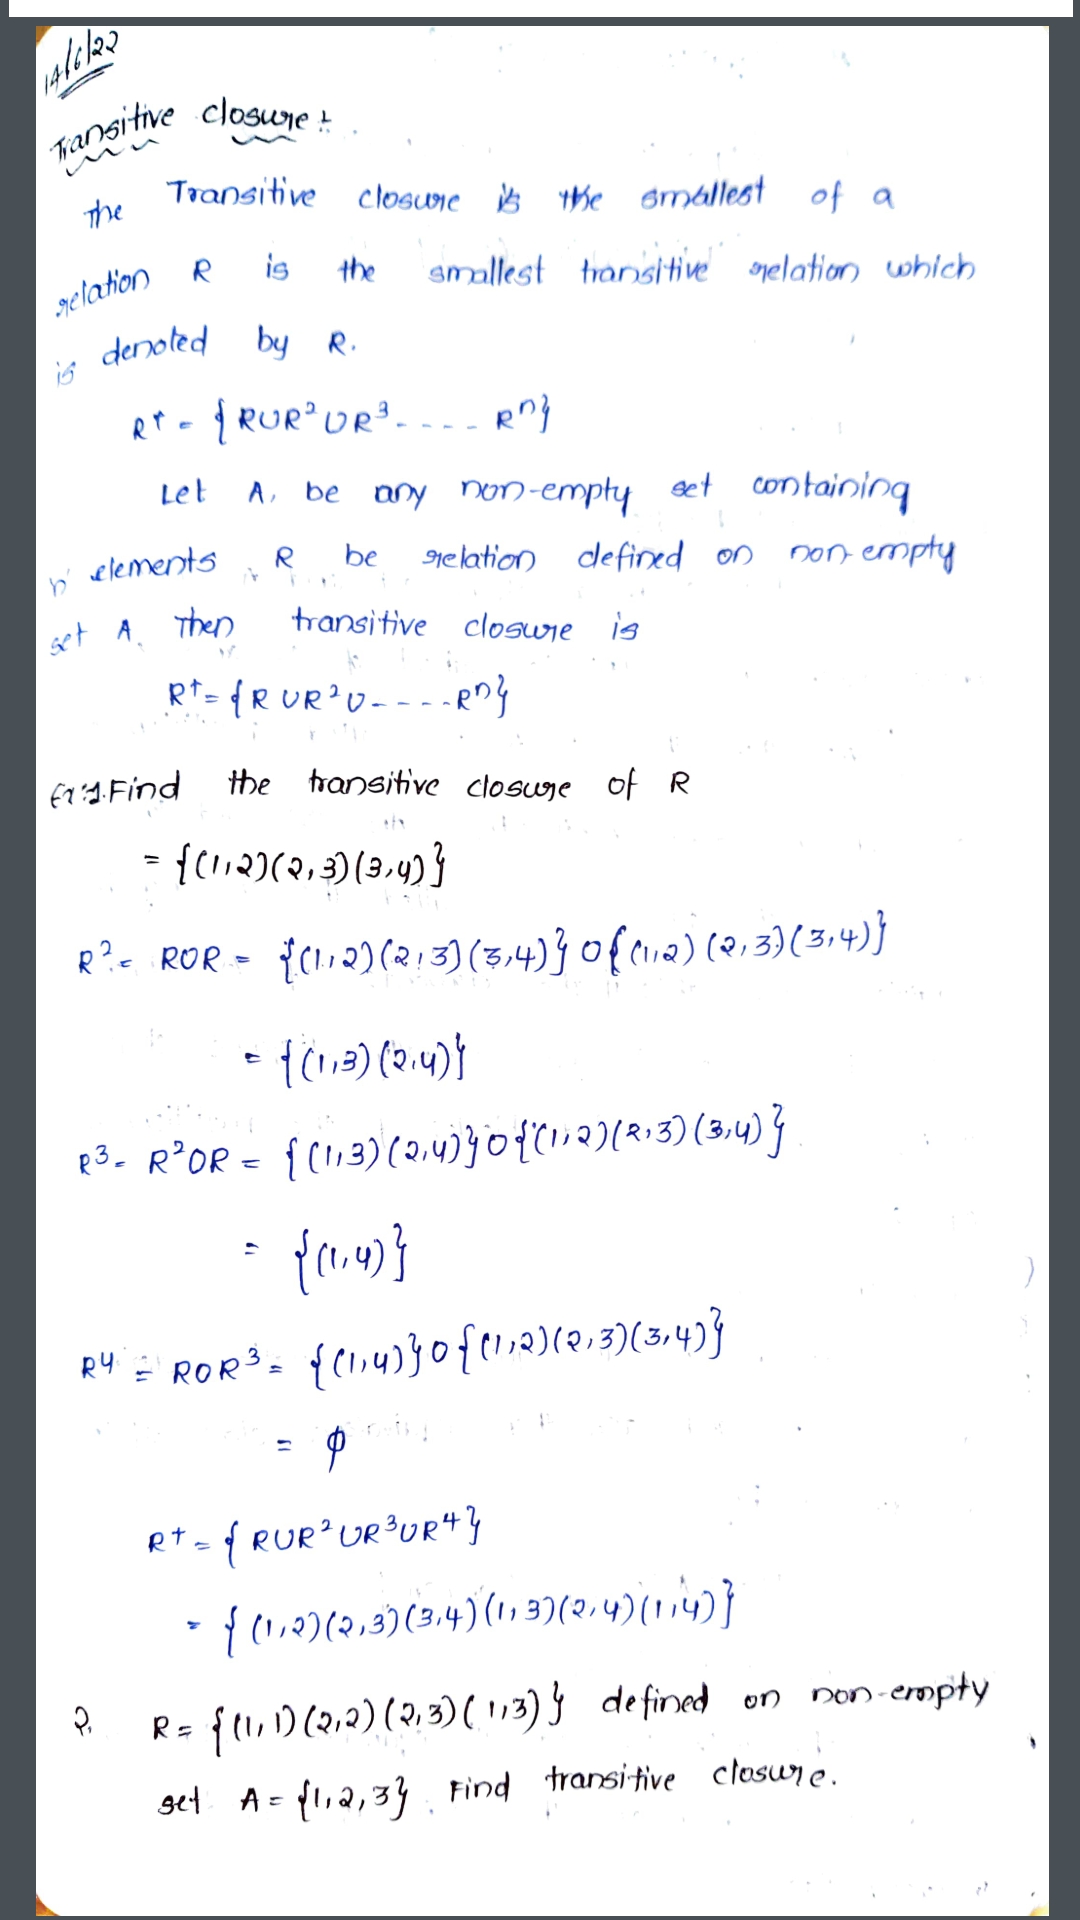 14/6/22
Transitive closure :-
The Transitive closure is the smallest of a
relation R is the smallest transitive relation which
is denoted by R.
R⁺ = {RUR²UR³---- Rⁿ}
Let A, be any non-empty set containing
'n' elements, R be relation defined on non-empty
set A. Then transitive closure is
R⁺ = {RUR²U-----Rⁿ}
Ex:1. Find the transitive closure of R
= {(1,2)(2,3)(3,4)}
R² = ROR = {(1,2)(2,3)(3,4)} O {(1,2)(2,3)(3,4)}
= {(1,3)(2,4)}
R³ = R²OR = {(1,3)(2,4)} O {(1,2)(2,3)(3,4)}
= {(1,4)}
R4 = ROR³ = {(1,4)} O {(1,2)(2,3)(3,4)}
= ϕ
R⁺ = {RUR²UR³UR⁴}
= {(1,2)(2,3)(3,4)(1,3)(2,4)(1,4)}
2. R = {(1,1)(2,2)(2,3)(1,3)} defined on non-empty
set A = {1,2,3}. Find transitive closure.